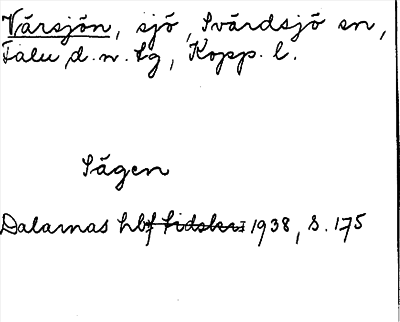 Vårsjön, sjö, Svärdsjö sn,
Falu d. n. tg, Kopp. l.
Sägen
Dalarnas hbf 1938, s. 175